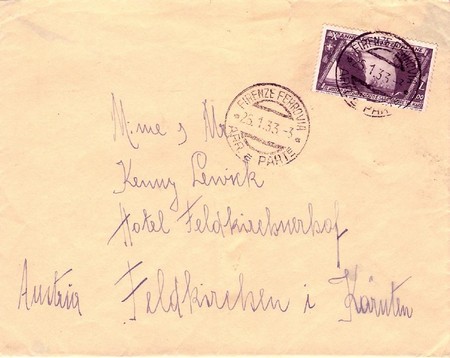 FIRENZE FERROVIA
25.1.33.-3
ARR. E PARTE
FIRENZE FERROVIA
1.33
M:me s Mr
Kenny Lewick
Hotel Feldkirchnerhof
Austria Feldkirchen i Kärnten